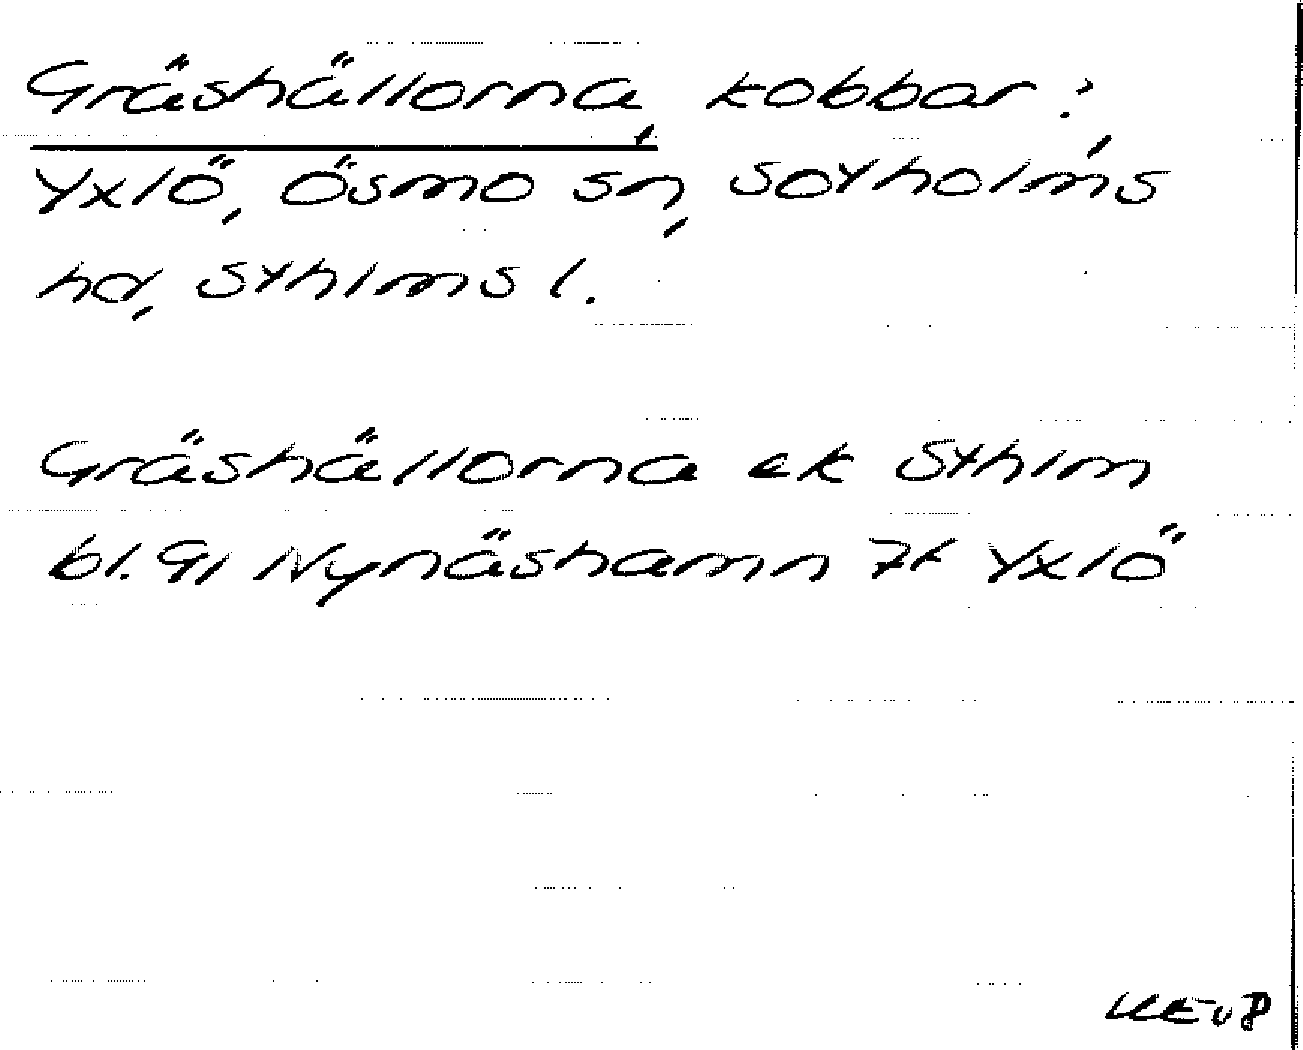 Gräshällorna, kobbar:
Yxlö, Ösmo sn, Sotholms
hd, Sthlms l.
Gräshällorna ek Sthlm
bl. 91 Nynäshamn 7k Yxlö